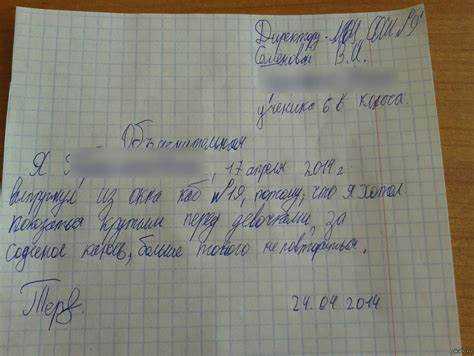 Директору МОУ СОШ №
Семеновой В.И.
ученика 6 в класса.
Объяснительная
Я 17 апреля 2014 г
выпрунул из окна каб №19, потому, что я хотел
показаться крутым перед девочками, за
содеяное каюсь, больше токого не повториться.
24.04 2014